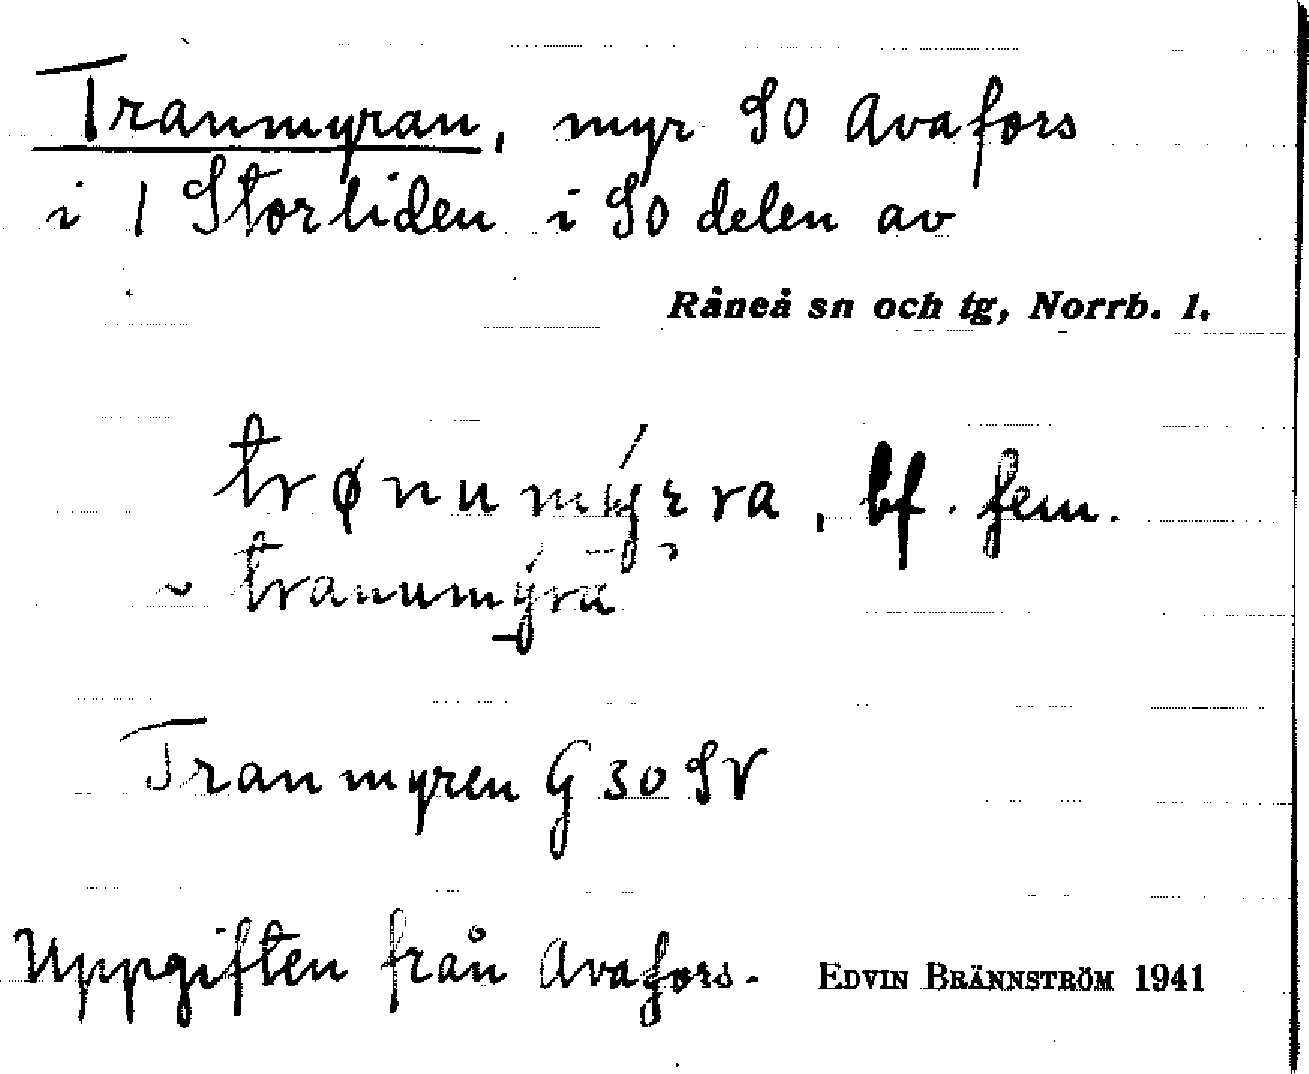 Tranmyran, myr SO Avafors
i 1 Storliden i SO delen av
Råneå sn och tg, Norrb. l.
trønumýrra, bf. fem.
~ tranumýra
Tranmyren G 30 SV
Uppgiften från Avafors. EDVIN BRÄNNSTRÖM 1941